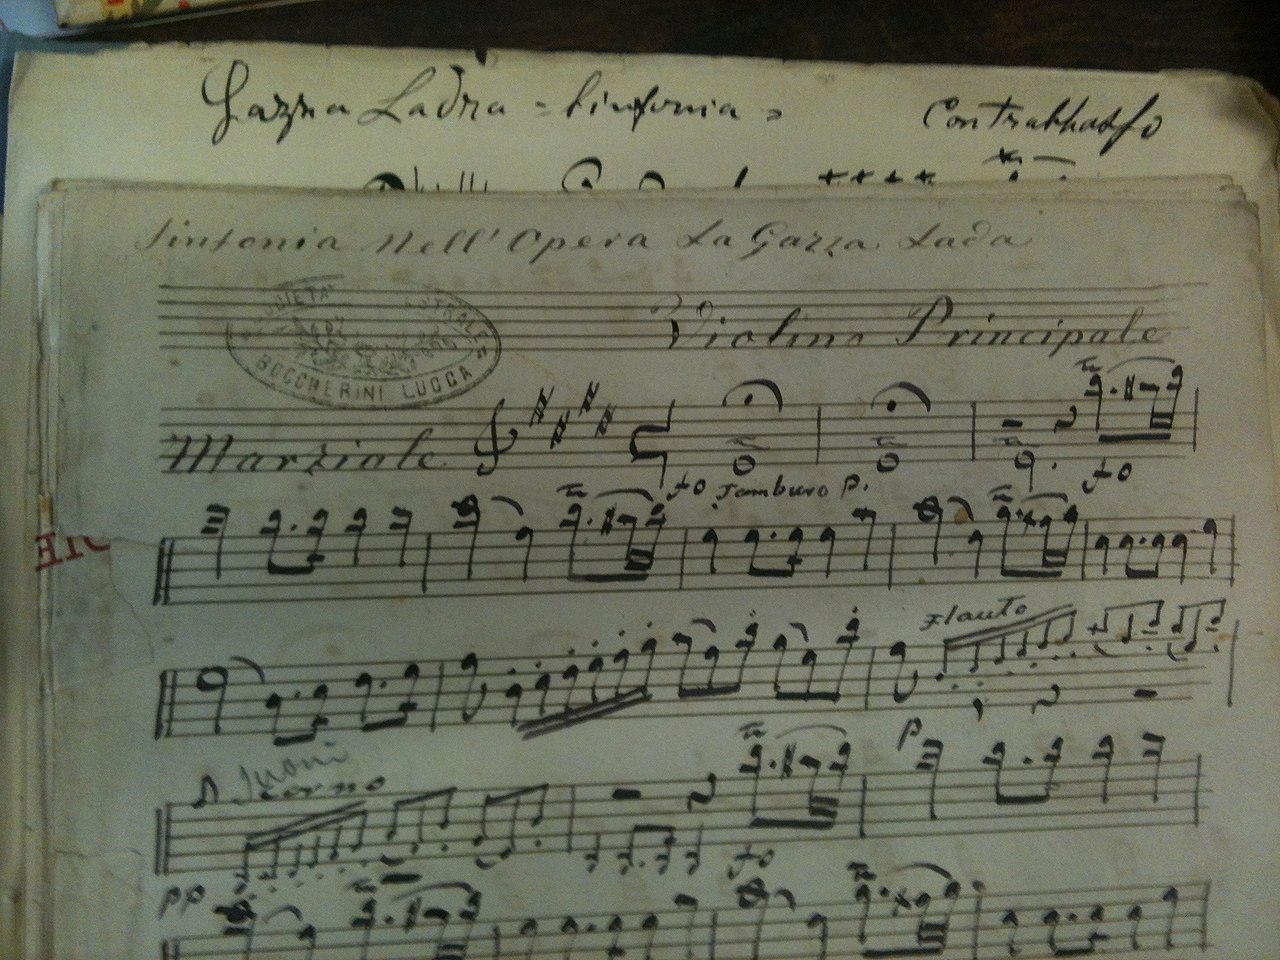 Gazza Ladra = Sinfonia = Contrabbasso
Sinfonia Nell' Opera La Gazza Lada
SOCIETA
BOCCHERINI LUCCA
Violino Principale
Marziale
fo Tamburo p. fo
Flauto
p
Corno
fo
pp